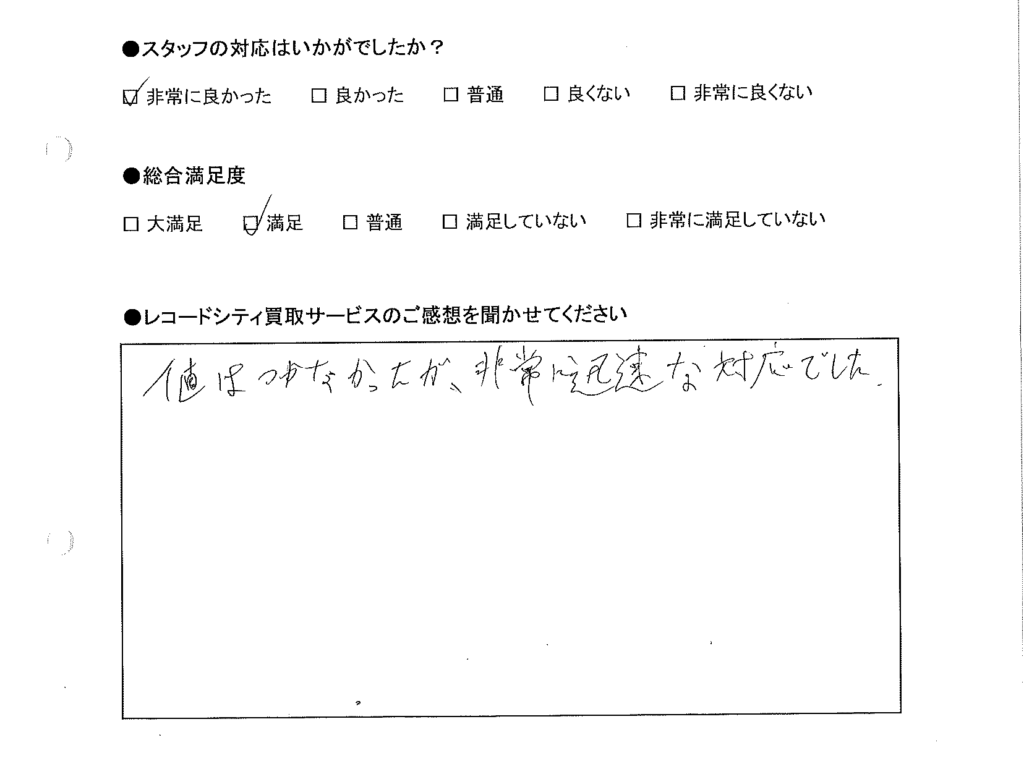 ●スタッフの対応はいかがでしたか？
☑ 非常に良かった □ 良かった □ 普通 □ 良くない □ 非常に良くない
●総合満足度
□ 大満足 ☑ 満足 □ 普通 □ 満足していない □ 非常に満足していない
●レコードシティ買取サービスのご感想を聞かせてください
値はつかなかったが、非常に迅速な対応でした.